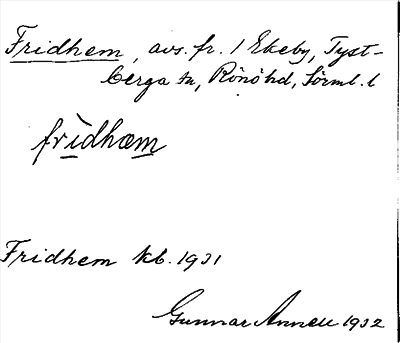 Fridhem, avs. fr. 1 Ekeby, Tyst-
berga sn, Rönö hd, Sörml. l
frìdhæm
Fridhem kb. 1931
Gunnar Annell 1932